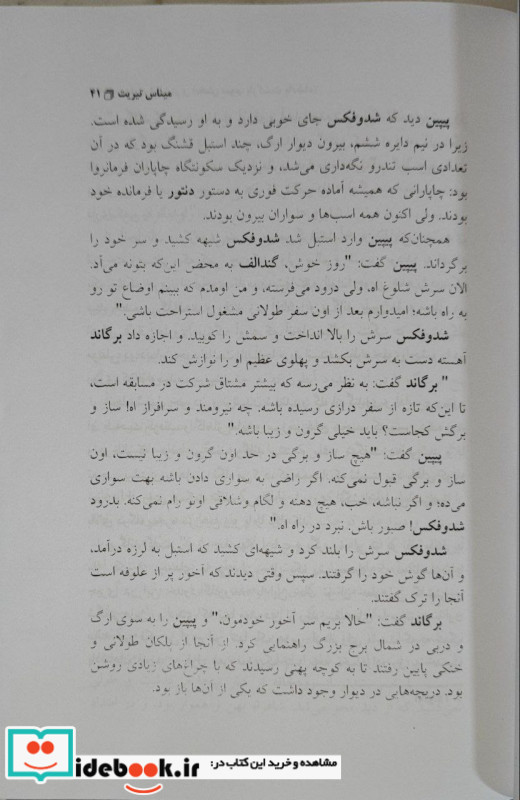 میناس تیریث ۴۱
پیپین دید که شدوفکس جای خوبی دارد و به او رسیدگی شده است.
زیرا در نیم دایره ششم، بیرون دیوار ارگ، چند اسبل قشنگ بود که در آن
تعدادی اسب تندرو نگه‌داری می‌شد، و نزدیک سکونتگاه چاپاران فرمانروا
بود: چاپارانی که همیشه آماده حرکت فوری به دستور دنتور یا فرمانده خود
بودند. ولی اکنون همه اسب‌ها و سواران بیرون بودند.
همچنان‌که پیپین وارد اسبل شد شدوفکس شیهه کشید و سر خود را
برگرداند. پیپین گفت: "روز خوش. گندالف به محض این‌که بتونه می‌آد.
الان سرش شلوغ اه. ولی درود می‌فرسته، و من اومدم که ببینم اوضاع تو رو
به راه باشه؛ امیدوارم بعد از اون سفر طولانی مشغول استراحت باشی."
شدوفکس سرش را بالا انداخت و سمش را کوبید. و اجازه داد برگاند
آهسته دست به سرش بکشد و پهلوی عظیم او را نوازش کند.
" برگاند گفت: به نظر می‌رسه که بیشتر مشتاق شرکت در مسابقه است،
تا این‌که تازه از سفر درازی رسیده باشه. چه نیرومند و سرافراز اه! ساز و
برگش کجاست؟ باید خیلی گرون و زیبا باشه."
پیپین گفت: "هیچ ساز و برگی در حد اون گرون و زیبا نیست، اون
ساز و برگی قبول نمی‌کنه. اگر راضی به سواری دادن باشه بهت سواری
می‌ده؛ و اگر نباشه، خب، هیچ دهنه و لگام وشلاقی اونو رام نمی‌کنه. بدرود
شدوفکس! صبور باش. نبرد در راه اه."
شدوفکس سرش را بلند کرد و شیهه‌ای کشید که اسبل به لرزه درآمد،
و آن‌ها گوش خود را گرفتند. سپس وقتی دیدند که آخور پر از علوفه است
آنجا را ترک گفتند.
برگاند گفت: "حالا بریم سر آخور خودمون،" و پیپین را به سوی ارگ
و دربی در شمال برج بزرگ راهنمایی کرد. از آنجا از پلکان طولانی و
خنکی پایین رفتند تا به کوچه پهنی رسیدند که با چراغ‌های زیادی روشن
بود. دریچه‌هایی در دیوار وجود داشت که یکی از آن‌ها باز بود.
مشاهده و خرید این کتاب در:
idebook.ir